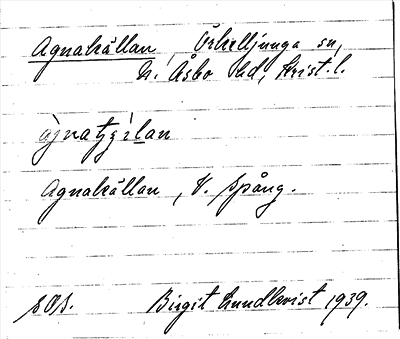 Agnakällan, Örkelljunga sn,
N. Åsbo hd, Krist. l.
Agnakällan, V. Spång.
SOS. Birgit Lundkvist 1939.